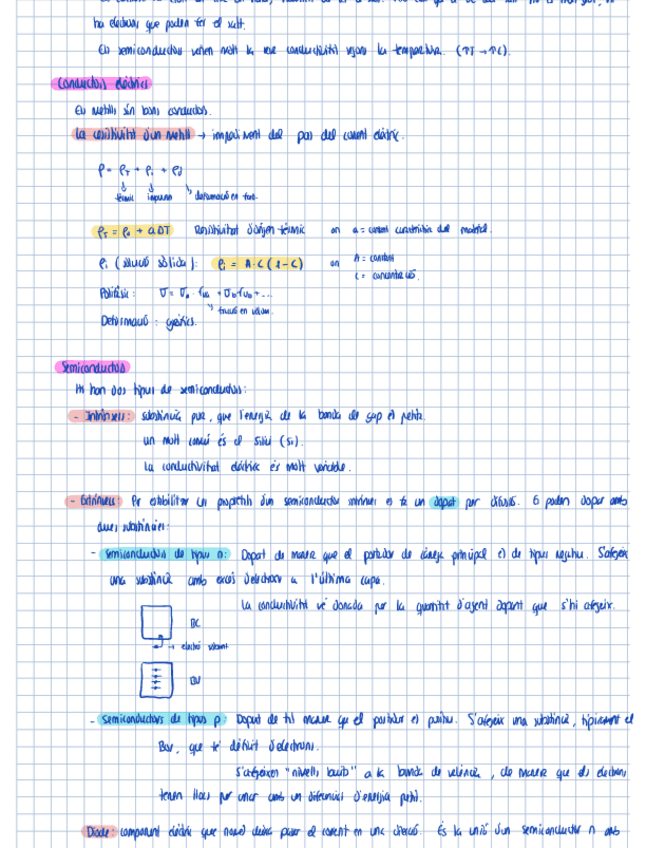 ha electrons que poden fer el salt.
Els semiconductors varien molt la seva conductivitat segons la temperatura. (↑T → ↑C).
Conductors elèctrics
Els metalls són bons conductors.
La resistivitat d'un metall → impediment del pas del corrent elèctric.
ρ = ρT + ρi + ρd
tèrmic impureses deformació en fred.
ρT = ρ0 + a ΔT Resistivitat d'origen tèrmic on a = constant característica del material.
ρi (solució sòlida): ρi = A·C (1-C) on A = constant
C = concentració.
Polifàsic: σ = σa · fva + σb · fvb + ...
fracció en volum.
Deformació: gràfics.
Semiconductors
Hi han dos tipus de semiconductors:
- Intrínsecs: substància pura, que l'energia de la banda de gap és petita.
un molt comú és el silici (Si).
La conductivitat elèctrica és molt variable.
- Extrínsecs: Per estabilitzar les propietats d'un semiconductor intrínsec es fa un dopat per difusió. Es poden dopar amb
dues substàncies:
- Semiconductors de tipus n: Dopat de manera que el portador de càrrega principal és de tipus negatiu. S'afegeix
una substància amb excés d'electrons a l'última capa.
La conductivitat ve donada per la quantitat d'agent dopant que s'hi afegeix.
BC
→ electró sobrant
BV
- Semiconductors de tipus p: Dopat de tal manera que el portador és positiu. S'afegeix una substància, típicament el
Bor, que té dèficit d'electrons.
S'afegeixen "nivells buits" a la banda de valència, de manera que els electrons
tenen llocs per anar amb un diferencial d'energia petit.
Díode: component elèctric que només deixa passar el corrent en una direcció. És la unió d'un semiconductor n amb